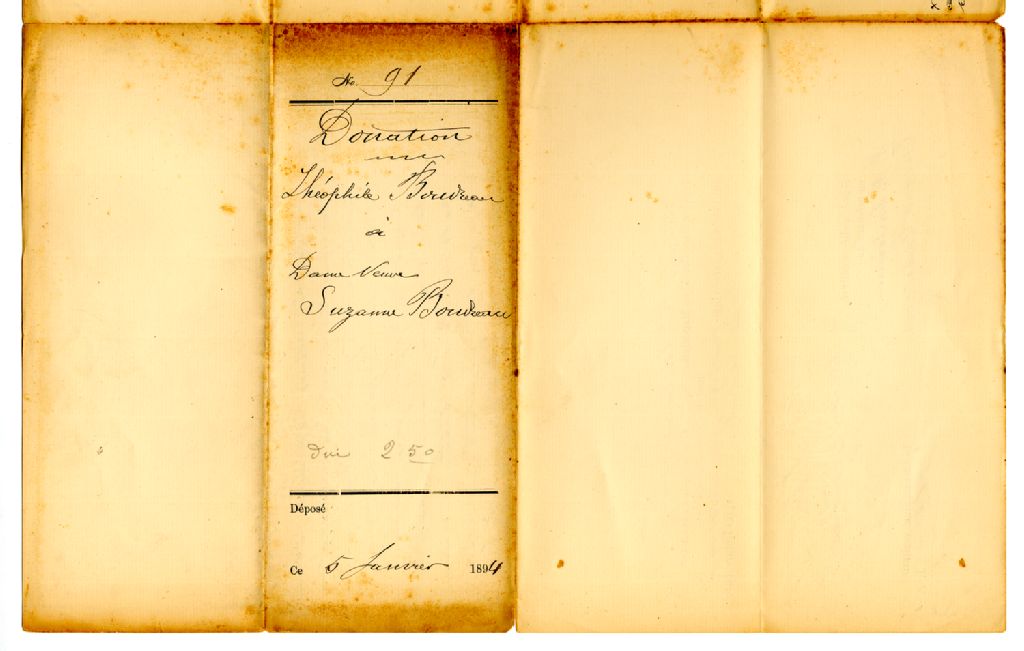 No. 91
Donation
Théophile Boudreau
à
Dame Veuve
Suzanne Boudreau
due 2 50
Déposé
Ce 5 Janvier 1894